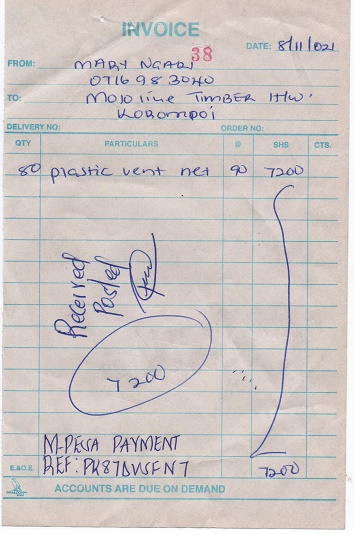 INVOICE
38
DATE: 8/11/021
FROM: MARY NGARI
0716983040
TO: Mojoline TIMBER H/W.
KOROMPOI
DELIVERY NO: ORDER NO:
QTY PARTICULARS @ SHS CTS.
80 plastic vent net 90 7200
Received
Posted
7200
M-PESA PAYMENT
E.&O.E. REF: 7200
ACCOUNTS ARE DUE ON DEMAND